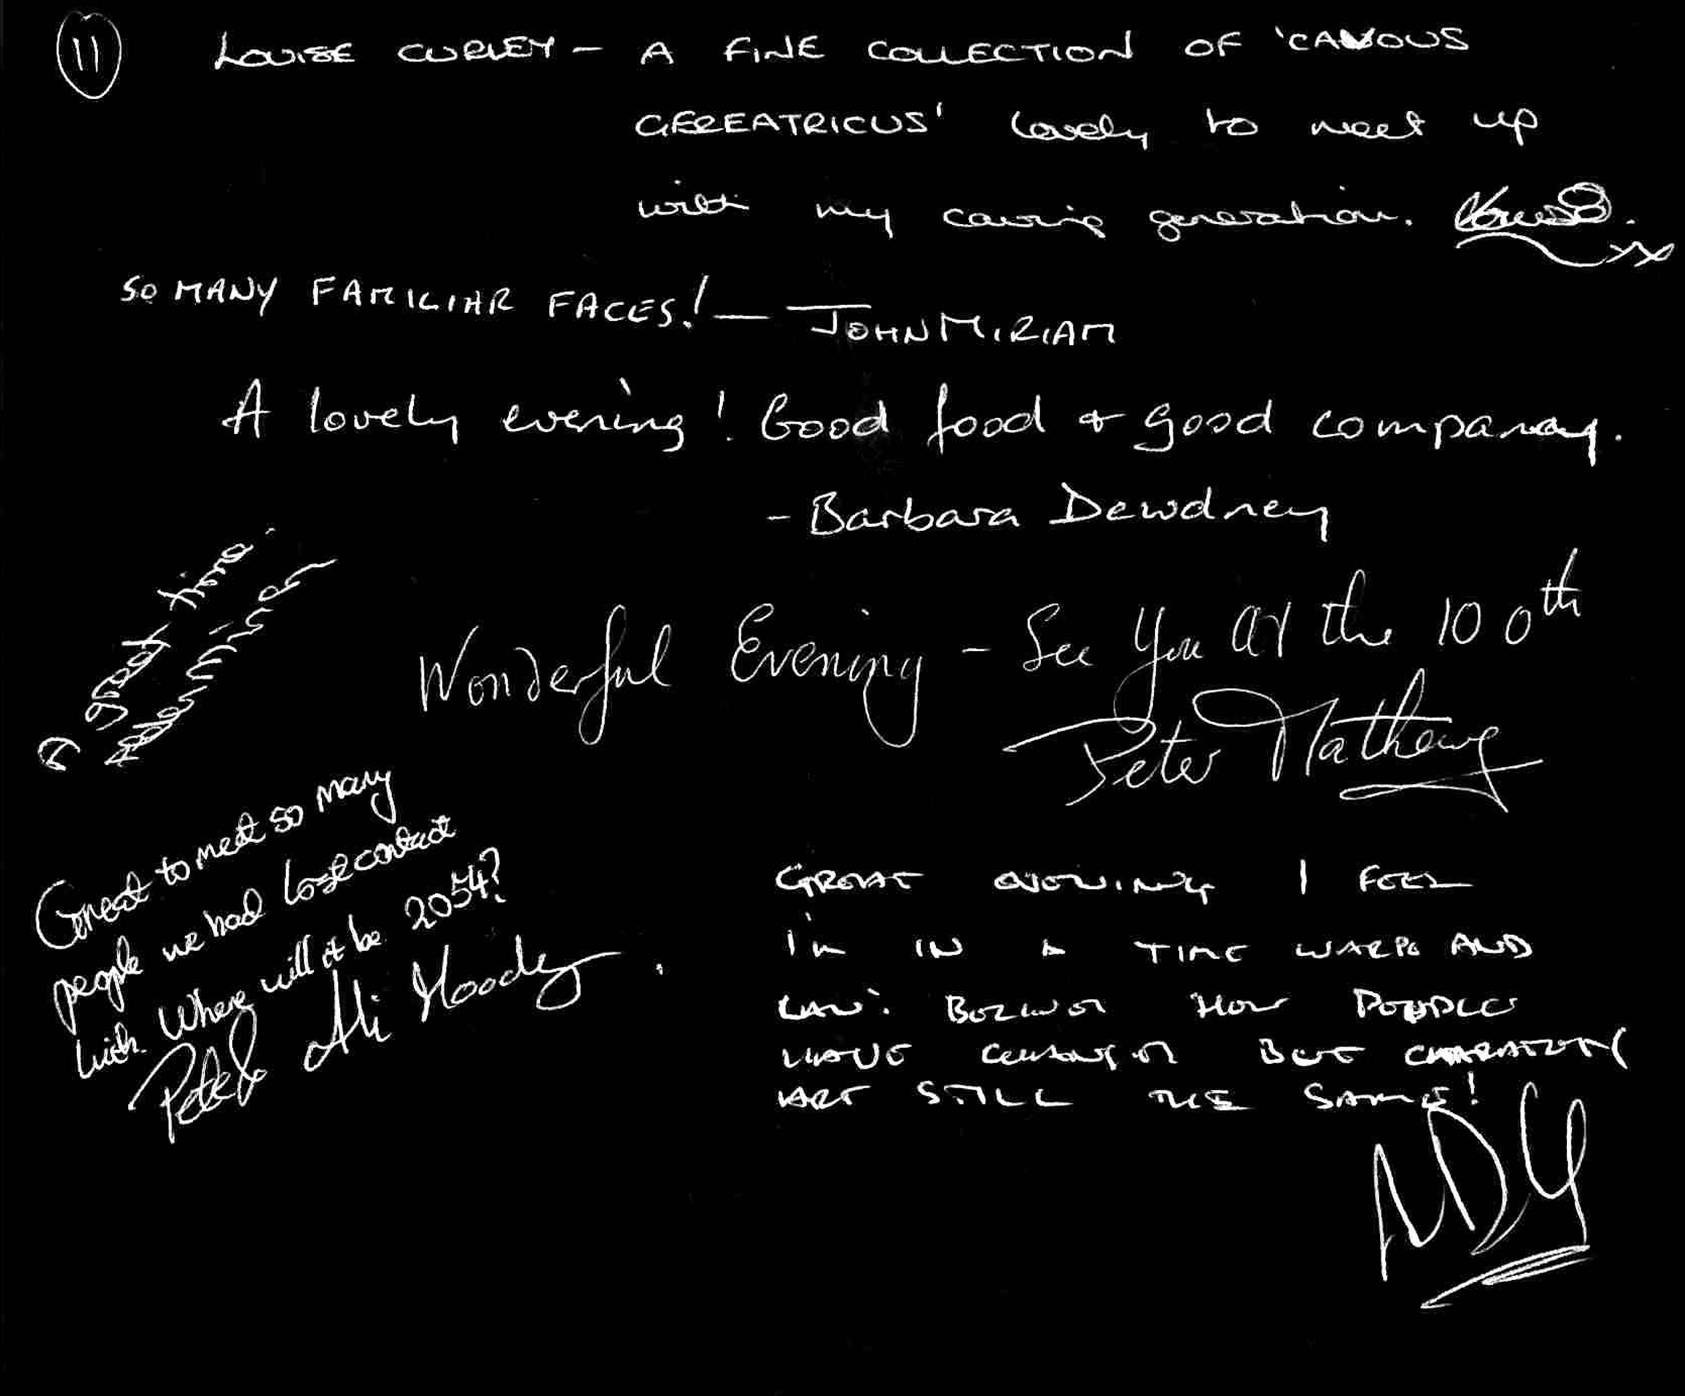 11
LOUISE CURLEY - A FINE COLLECTION OF 'CAVOUS
GEREATRICUS' Lovely to meet up
with my caving generation. Louise. xx
SO MANY FAMILIAR FACES! - JOHN MIRIAM
A lovely evening! Good food & good company.
- Barbara Dewdney
A great time.
Wonderful Evening - See You at the 100th
Peter Mathews
Great to meet so many
people we had lost contact
with. Where will it be 2054?
Pete & Ali Moody
GREAT EVENING I FEEL
I'M IN A TIME WARP AND
CAN'T BELIEVE HOW PEOPLE
HAVE CHANGED BUT CHARACTERS
ARE STILL THE SAME!
ADY